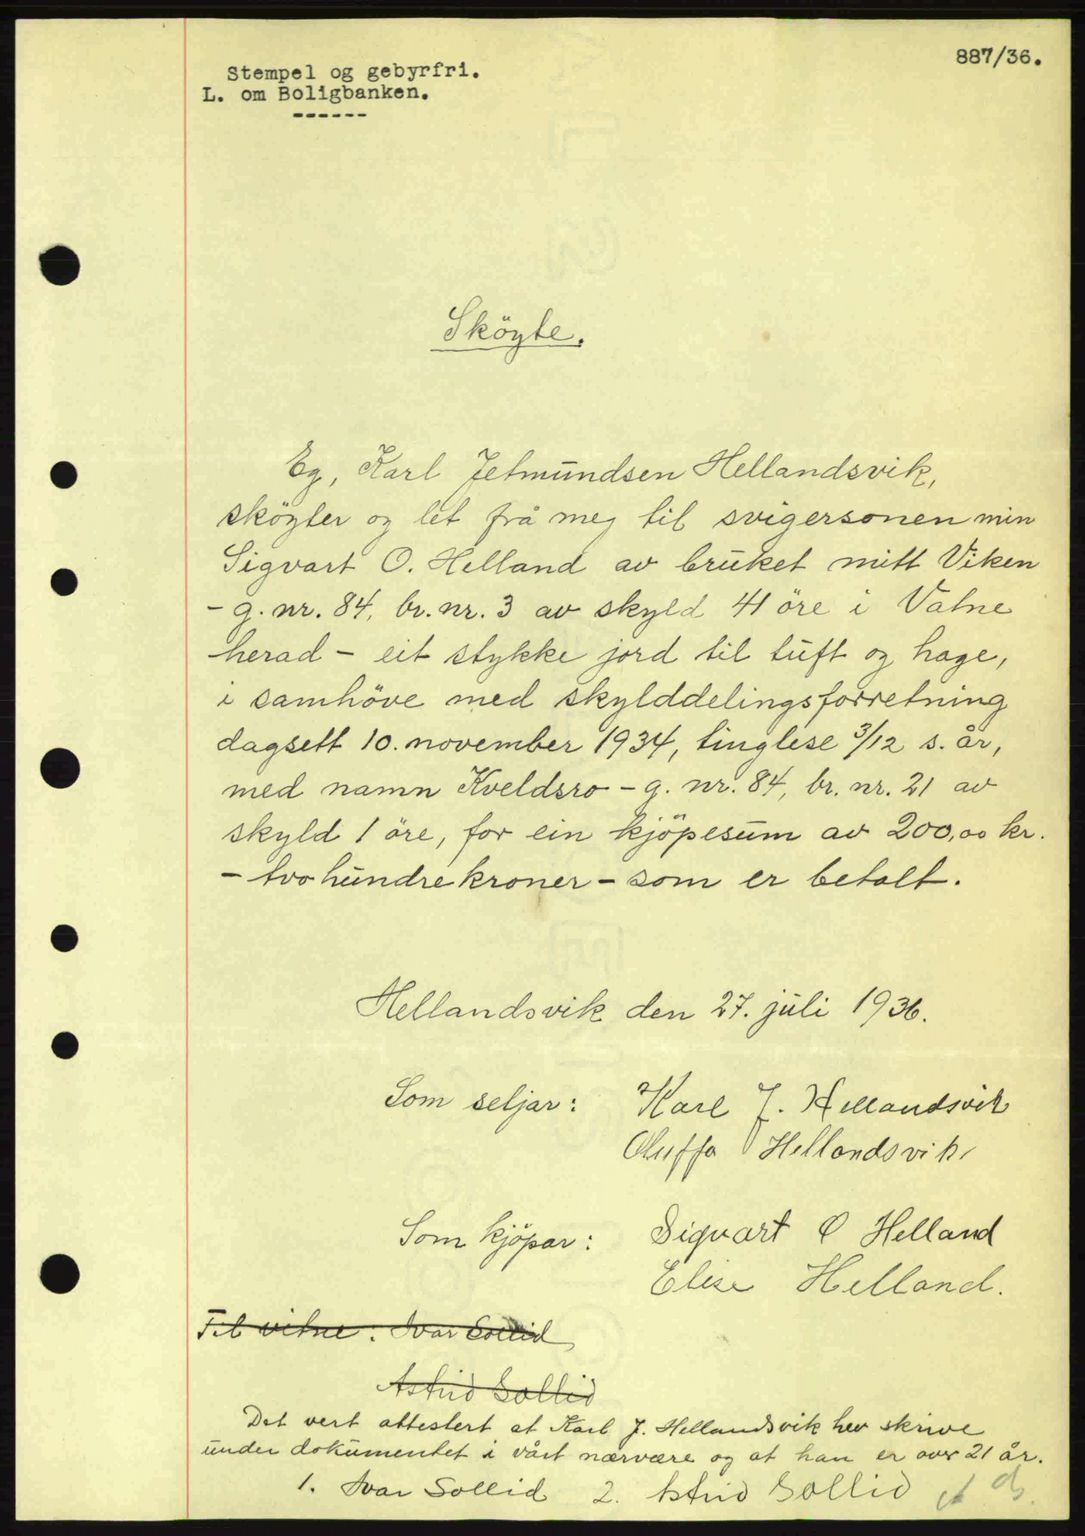 887/36.
Stempel og gebyrfri.
L. om Boligbanken.
------
Sköyte.
Eg, Karl Jetmundsen Hellandsvik,
sköyter og let frå meg til svigersonen min
Sigvart O. Helland av bruket mitt Viken
- g. nr. 84, br. nr. 3 av skyld 41 öre i Vatne
herad - eit stykke jord til tuft og hage,
i samhöve med skylddelingsforretning
dagsett 10. november 1934, tinglese 3/12 s. år,
med namn Kveldsro - g. nr. 84, br. nr. 21 av
skyld 1 öre, for ein kjöpesum av 200,00 kr.
- tvo hundre kroner - som er betalt.
Hellandsvik den 27. juli 1936.
Som seljar: Karl J. Hellandsvik
Oluffa Hellandsvik
Som kjöpar: Sigvart O Helland
Elise Helland.
Til vitne: Ivar Sollid
Astrid Sollid
Det vert attestert at Karl J. Hellandsvik hev skrive
under dokumentet i vårt nærvære og at han er over 21 år.
1. Ivar Sollid 2. Astrid Sollid